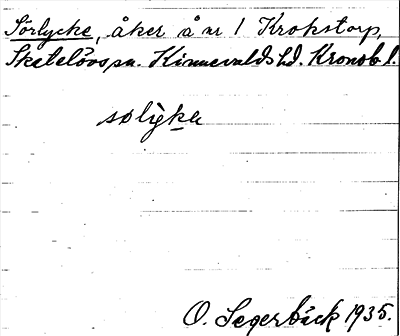 Sörlycke, åker å nr 1 Krokstorp,
Skatelövs sn. Kinnevalds hd. Kronob. l.
sølyka
O. Segerbäck 1935.